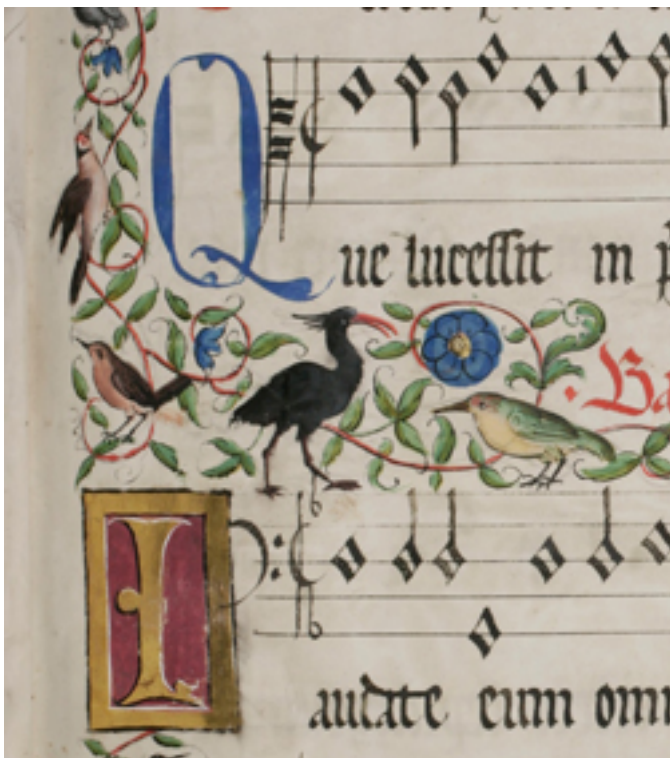 Que lucessit in p
Ba
Laudate eum omn